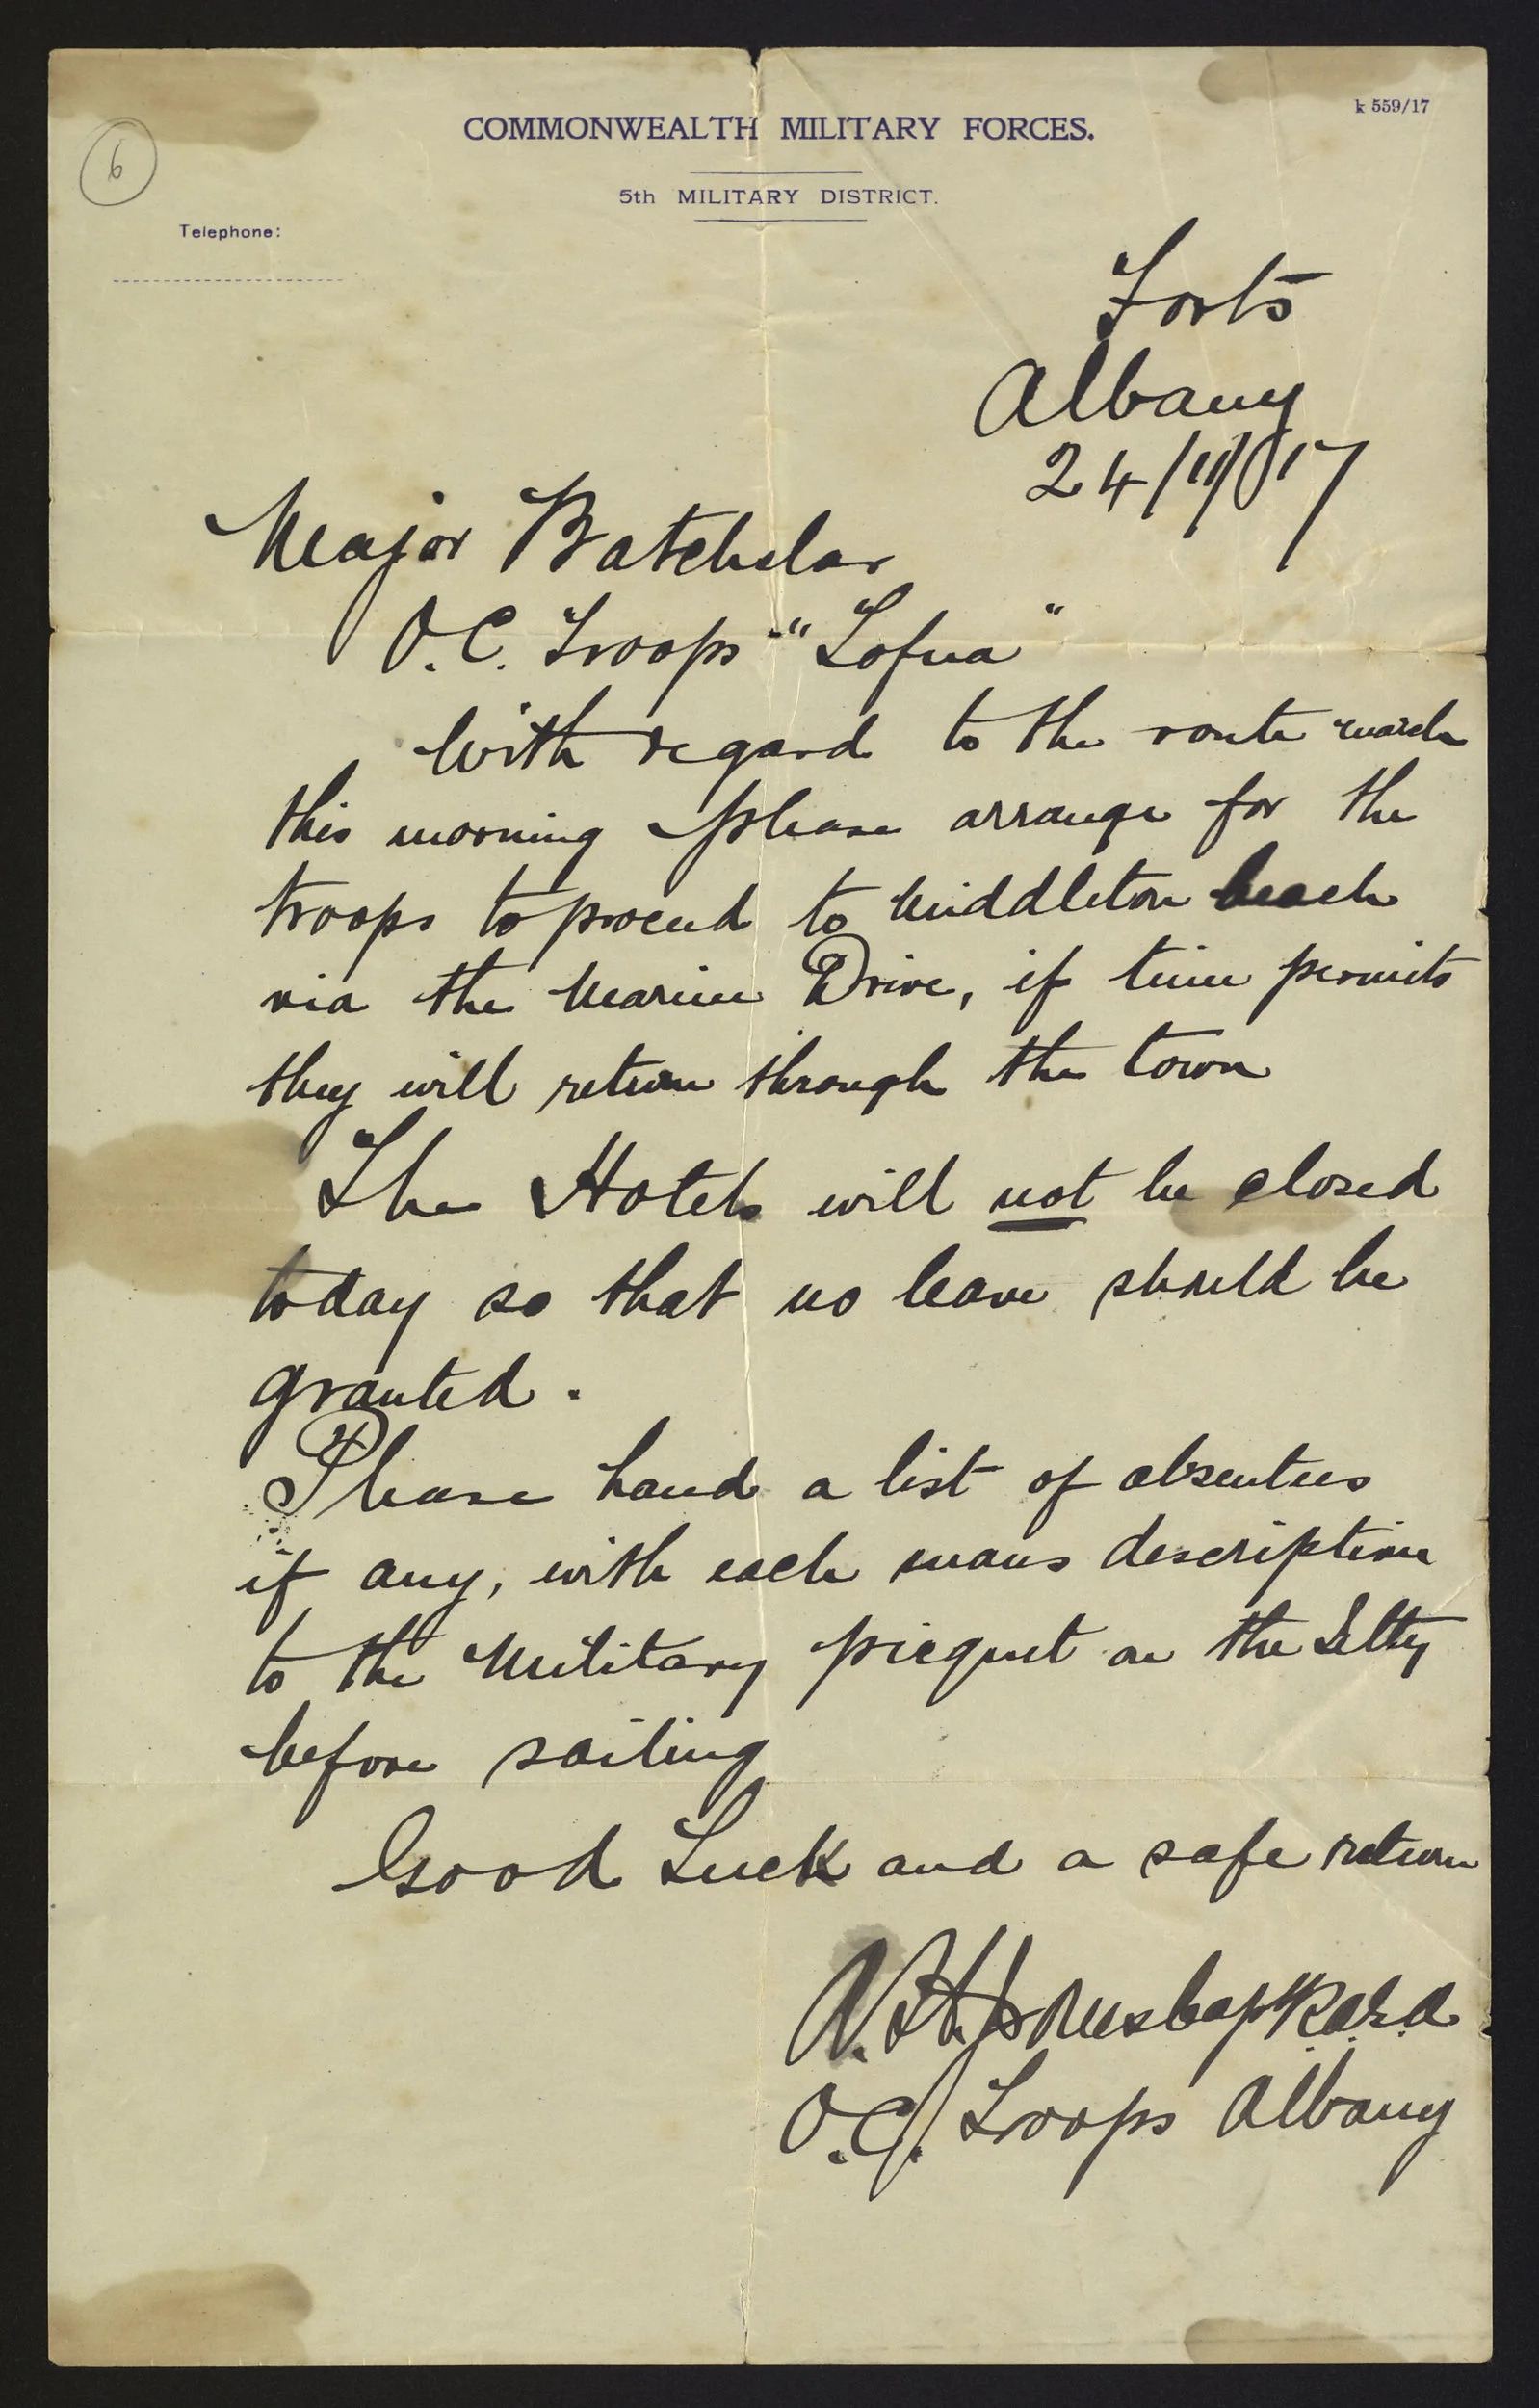 k 559/17
COMMONWEALTH MILITARY FORCES.
6
5th MILITARY DISTRICT.
Telephone:
Forts
Albany
24/11/17
Major Batchelor
O.C. Troops "Lofua"
With regard to the route march
this morning please arrange for the
troops to proceed to Middleton beach
via the Marine Drive, if time permits
they will return through the town
The Hotels will not be closed
today so that no leave should be
granted.
Please hand a list of absentees
if any, with each mans description
to the Military picquet on the Jetty
before sailing
Good Luck and a safe return
O.C. Troops Albany